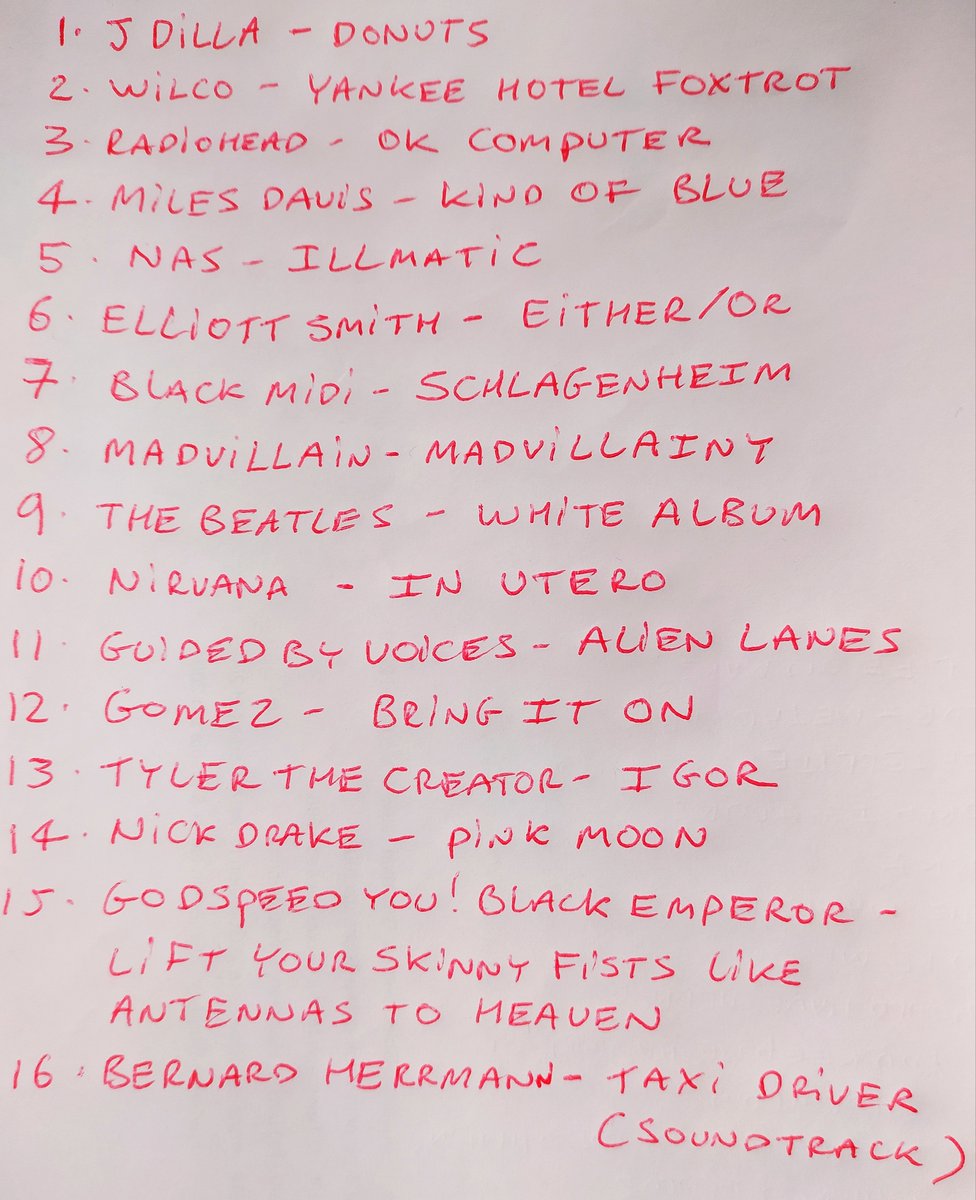 1. J DILLA - DONUTS
2. WILCO - YANKEE HOTEL FOXTROT
3. RADIOHEAD - OK COMPUTER
4. MILES DAVIS - KIND OF BLUE
5. NAS - ILLMATIC
6. ELLIOTT SMITH - EITHER/OR
7. BLACK MIDI - SCHLAGENHEIM
8. MADVILLAIN - MADVILLAINY
9. THE BEATLES - WHITE ALBUM
10. NIRVANA - IN UTERO
11. GUIDED BY VOICES - ALIEN LANES
12. GOMEZ - BRING IT ON
13. TYLER THE CREATOR - IGOR
14. NICK DRAKE - PINK MOON
15. GODSPEED YOU! BLACK EMPEROR -
LIFT YOUR SKINNY FISTS LIKE
ANTENNAS TO HEAVEN
16. BERNARD HERRMANN - TAXI DRIVER
(SOUNDTRACK)